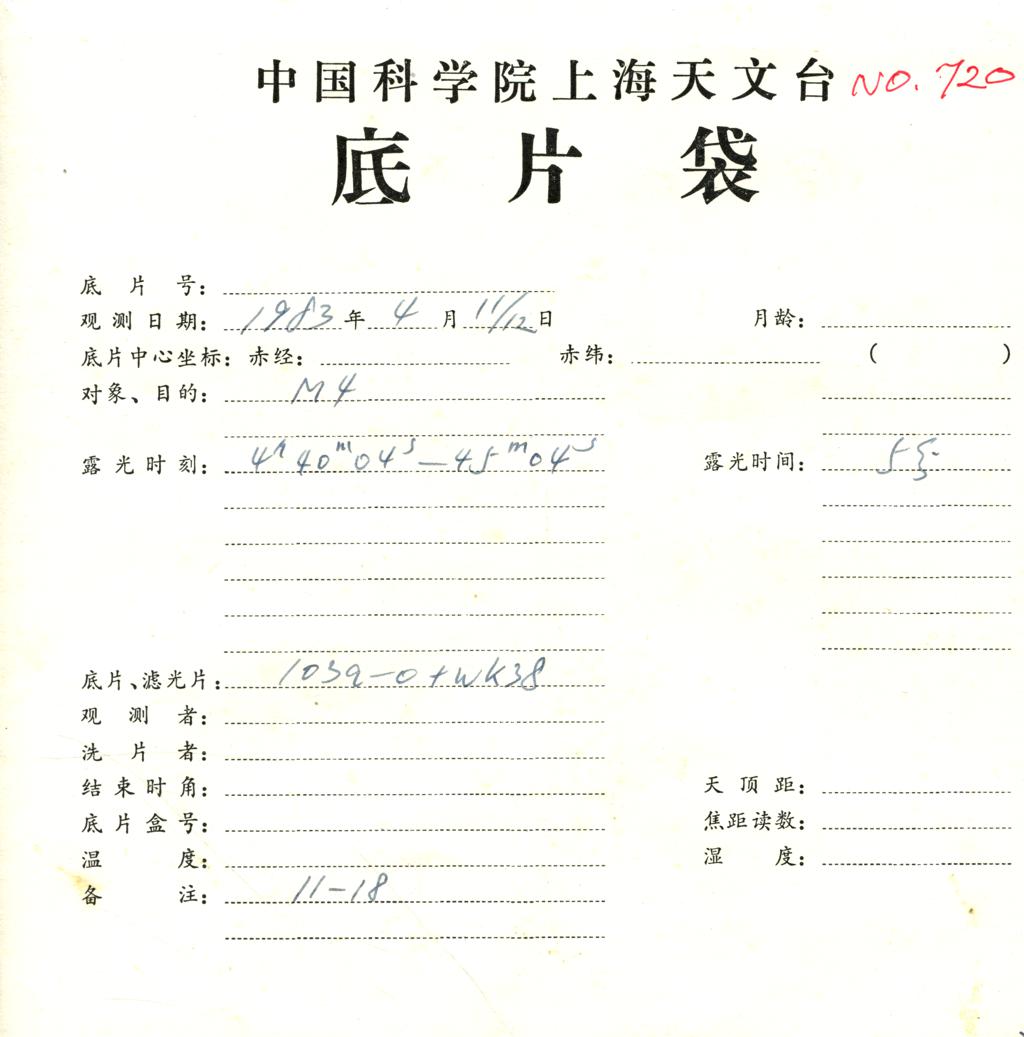 中国科学院上海天文台 NO. 720
底片袋
底片号：
观测日期：1983年4月11/12日 月龄：
底片中心坐标：赤经： 赤纬： ( )
对象、目的：M4
露光时刻：4h40m04s—45m04s 露光时间：5分
底片、滤光片：103a-O+WK38
观测者：
洗片者：
结束时角： 天顶距：
底片盒号： 焦距读数：
温度： 湿度：
备注：11-18